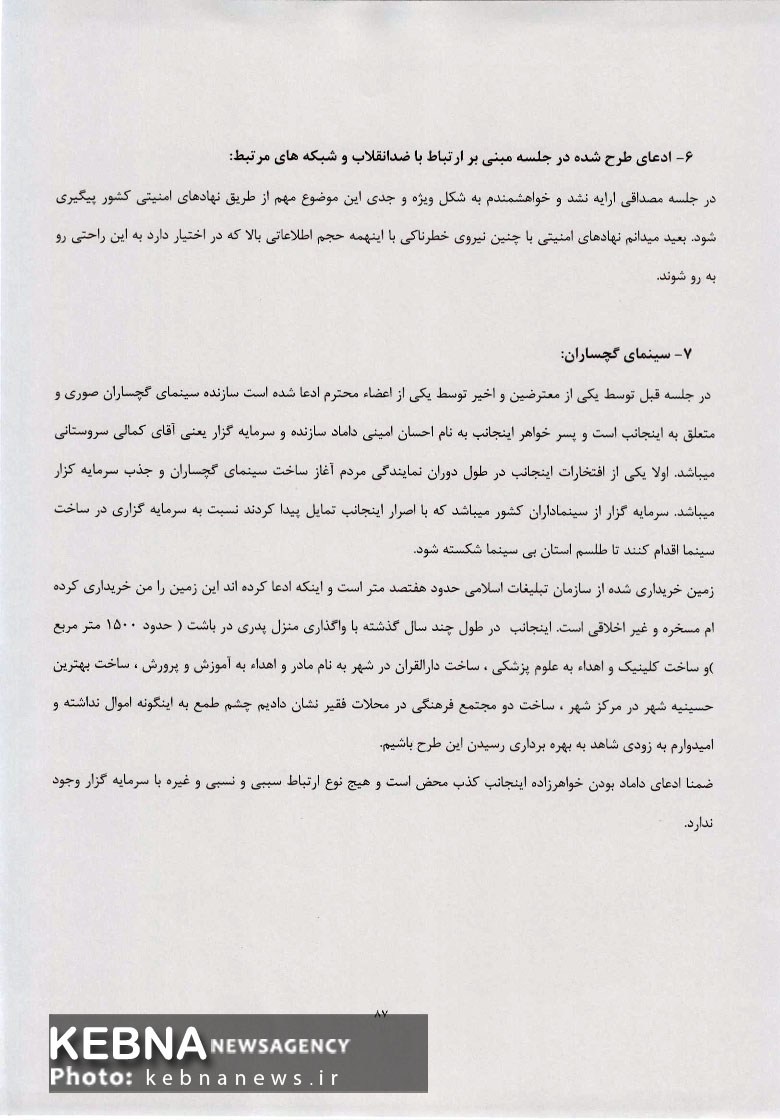 ۶- ادعای طرح شده در جلسه مبنی بر ارتباط با ضدانقلاب و شبکه های مرتبط:
در جلسه مصداقی ارایه نشد و خواهشمندم به شکل ویژه و جدی این موضوع مهم از طریق نهادهای امنیتی کشور پیگیری
شود. بعید میدانم نهادهای امنیتی با چنین نیروی خطرناکی با اینهمه حجم اطلاعاتی بالا که در اختیار دارد به این راحتی رو
به رو شوند.
۷- سینمای گچساران:
در جلسه قبل توسط یکی از معترضین و اخیر توسط یکی از اعضاء محترم ادعا شده است سازنده سینمای گچساران صوری و
متعلق به اینجانب است و پسر خواهر اینجانب به نام احسان امینی داماد سازنده و سرمایه گزار یعنی آقای کمالی سروستانی
میباشد. اولا یکی از افتخارات اینجانب در طول دوران نمایندگی مردم آغاز ساخت سینمای گچساران و جذب سرمایه کزار
میباشد. سرمایه گزار از سینماداران کشور میباشد که با اصرار اینجانب تمایل پیدا کردند نسبت به سرمایه گزاری در ساخت
سینما اقدام کنند تا طلسم استان بی سینما شکسته شود.
زمین خریداری شده از سازمان تبلیغات اسلامی حدود هفتصد متر است و اینکه ادعا کرده اند این زمین را من خریداری کرده
ام مسخره و غیر اخلاقی است. اینجانب در طول چند سال گذشته با واگذاری منزل پدری در باشت ( حدود ۱۵۰۰ متر مربع
)و ساخت کلینیک و اهداء به علوم پزشکی ، ساخت دارالقران در شهر به نام مادر و اهداء به آموزش و پرورش ، ساخت بهترین
حسینیه شهر در مرکز شهر ، ساخت دو مجتمع فرهنگی در محلات فقیر نشان دادیم چشم طمع به اینگونه اموال نداشته و
امیدوارم به زودی شاهد به بهره برداری رسیدن این طرح باشیم.
ضمنا ادعای داماد بودن خواهرزاده اینجانب کذب محض است و هیچ نوع ارتباط سببی و نسبی و غیره با سرمایه گزار وجود
ندارد.
۸۷
KEBNA NEWSAGENCY
Photo: kebnanews.ir